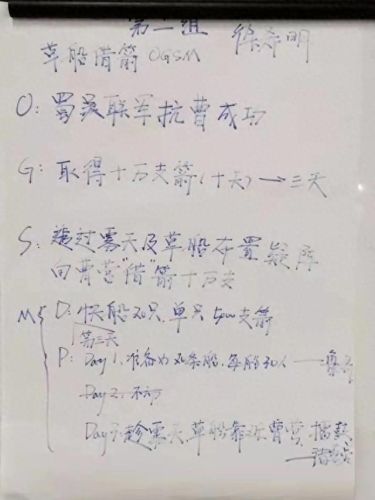 第二组 徐希明
草船借箭 OGSM
O: 蜀吴联军抗曹成功
G: 取得十万支箭(十天)→三天
S: 通过雾天及草船布置疑阵
向曹营"借"箭十万支
M: D: 快船20只,单只5000支箭
第三天
P: Day 1. 准备20条船,每船30人
Day 2. 不动
Day 3. 趁雾天草船靠近曹营,擂鼓